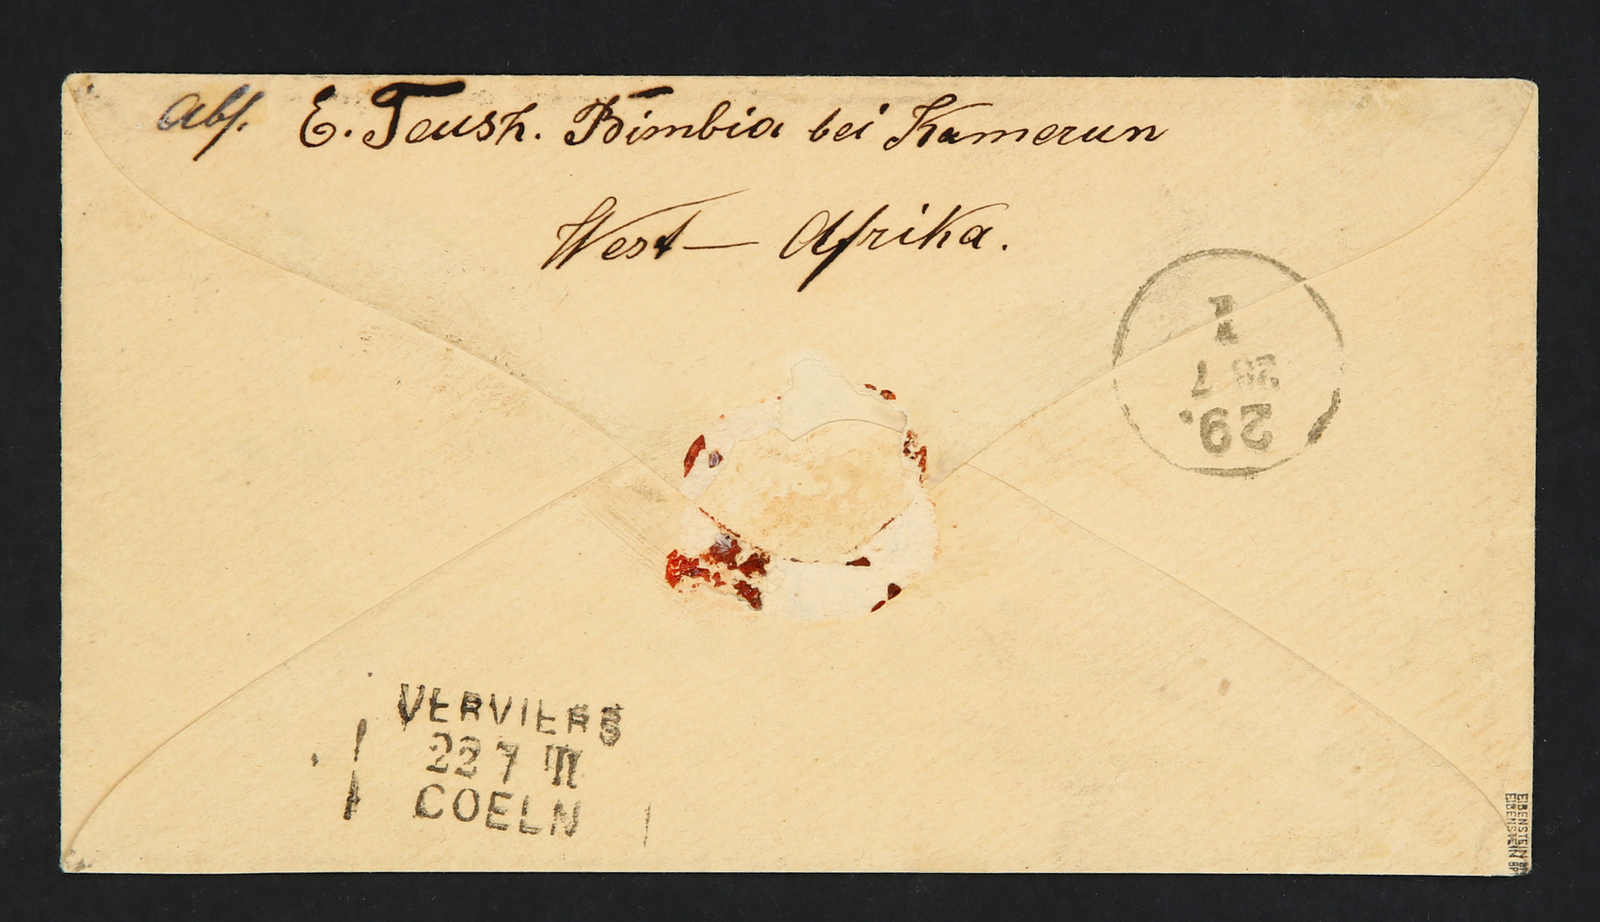 Abs. E. Teusz. Bimbia bei Kamerun
West — Afrika.
1
28 7
29.
VERVIERS
22 7 III
COELN
EIBENSTEIN BP
EIBENSTEIN BP